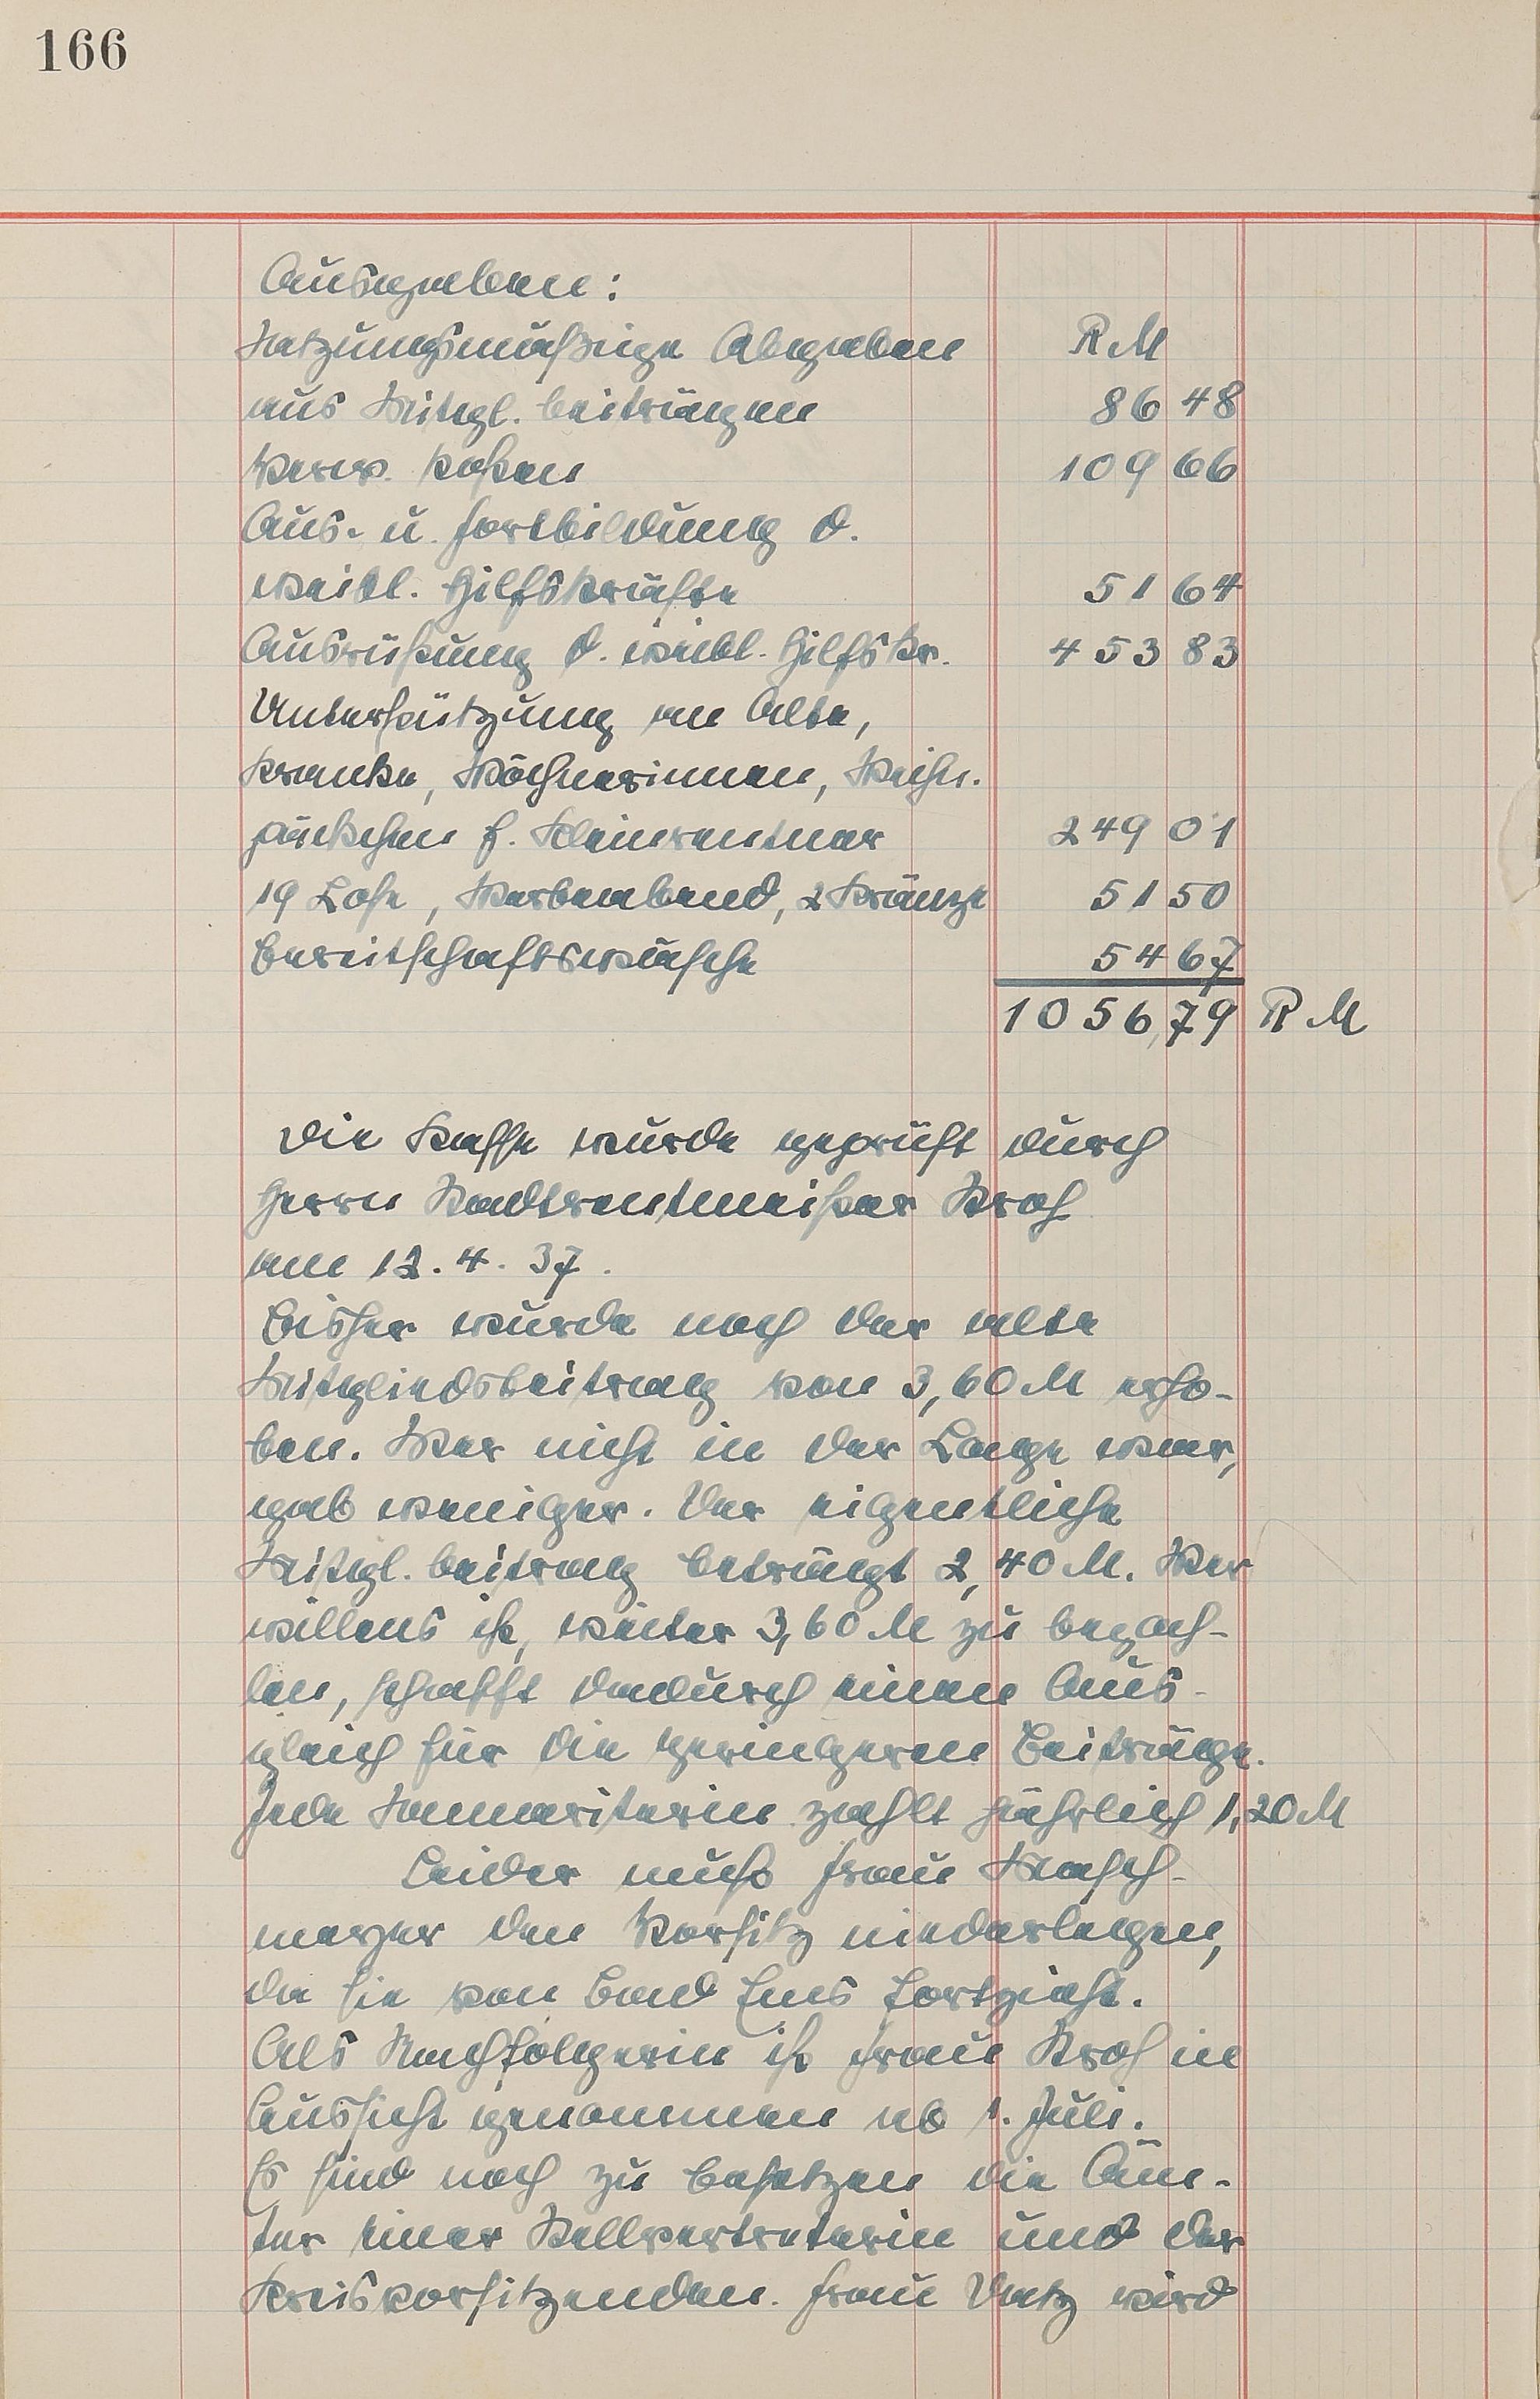 166
Ausgaben:
Satzungsmäßige Abgaben RM
aus Mitgl. beiträgen 86 48
Verw. kosten 109 66
Aus- u. Fortbildung d.
weibl. Hilfskräfte 51 64
Ausrüstung d. weibl. Hilfskr. 453 83
Unterstützung an Alte,
Kranke, Wöchnerinnen, Weihn.
päckchen f. Kleinrentner 249 01
19 Lose, Werbeabend, 2 Kränze 51 50
Bereitschaftswäsche 54 67
1056,79 RM
Die Kasse wurde geprüft durch
Herrn Stadtrentmeister Stroh
am 12. 4. 37.
Bisher wurde noch der alte
Mitgliedsbeitrag von 3,60 M erho-
ben. Wer nicht in der Lage war,
gab weniger. Der eigentliche
Mitgl. beitrag beträgt 2,40 M. Wer
willens ist, weiter 3,60 M zu bezah-
len, schafft dadurch einen Aus-
gleich für die geringeren Beiträge.
Jede Samariterin zahlt jährlich 1,20 M
Leider muß Frau
meyer den Vorsitz niederlegen,
da sie von Bad Ems fortzieht.
Als Nachfolgerin ist Frau Stroh in
Aussicht genommen ab 1. Juli.
Es sind noch zu besetzen die Äm-
ter einer Stellvertreterin und der
Kreisvorsitzenden. Frau Vatz wird